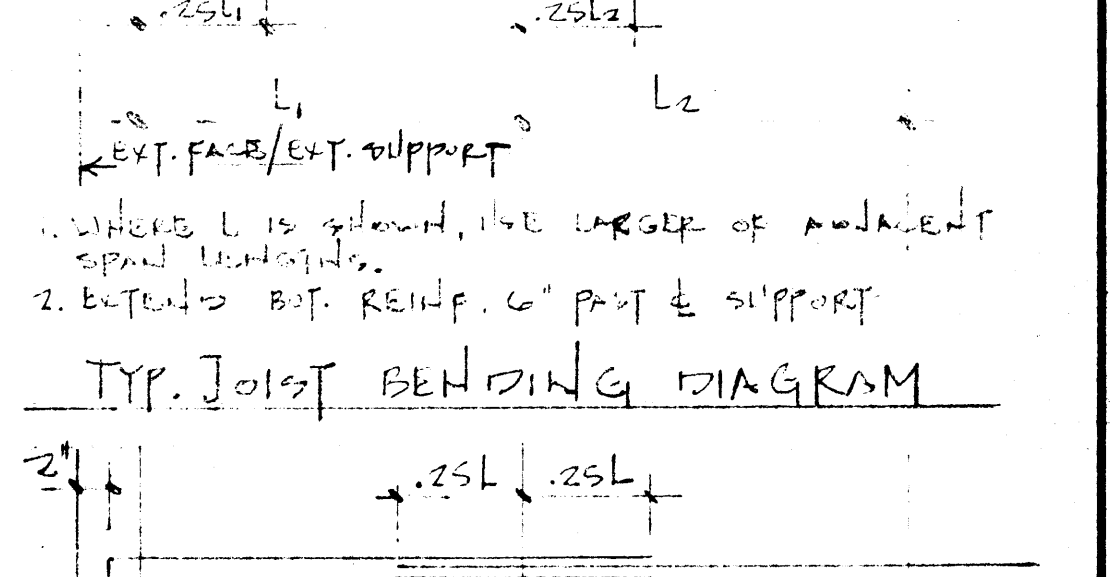 .25L₁ .25L₂
L₁ L₂
EXT. FACE/EXT. SUPPORT
1. WHERE L IS SHOWN, USE LARGER OF ADJACENT
SPAN LENGTHS.
2. EXTEND BOT. REINF. 6" PAST ℄ SUPPORT
TYP. JOIST BENDING DIAGRAM
2" .25L .25L